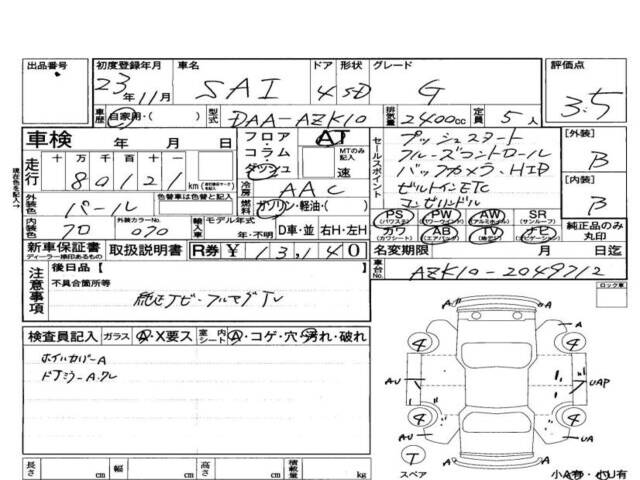 出品番号 初度登録年月 車名 ドア 形状 グレード 評価点
23年11月 SAI 4 SD G 3.5
車歴 自家用・( ) 型式 DAA-AZK10 排気量 2400cc 定員 5人
車検 年 月 日 フロア・コラム・ダッシュ AT MTのみ記入 速
セールスポイント
プッシュスタート
クルーズコントロール
バックカメラ、HID
ビルトインETC
コンビハンドル
[外装] B
[内装] B
現在色を記入→
走行 十万千百十一
80121 km
冷房 AAC
外装色 パール 色替車は色替と記入 燃料 ガソリン・軽油・( )
内装色 クロ 外装カラーNo. 070 輸入車 モデル年式 年・不明 D車・並 右H・左H
PS (パワステ) PW (パワーウインド) AW (アルミホイル) SR (サンルーフ)
カワ (カワシート) AB (エアバック) TV ナビ (ナビゲーション) 純正品のみ丸印
新車保証書 ディーラー捺印あるもの 取扱説明書 R券 ¥ 13,140 名変期限 月 日迄
車台No. AZK10-2049712
注意事項 後日品【 】
不具合箇所等
純正ナビ・フルセグTV
ロック車
検査員記入 ガラス A・X要ス 室内シート A・コゲ・穴・汚れ・破れ
ホイルカバーA
ドアミラーA.クレ
A
4 4
AU UAP
4 4
AU UA
T
スペア A 小A有・小U有
長さ cm 幅 cm 高さ cm 積載量 kg